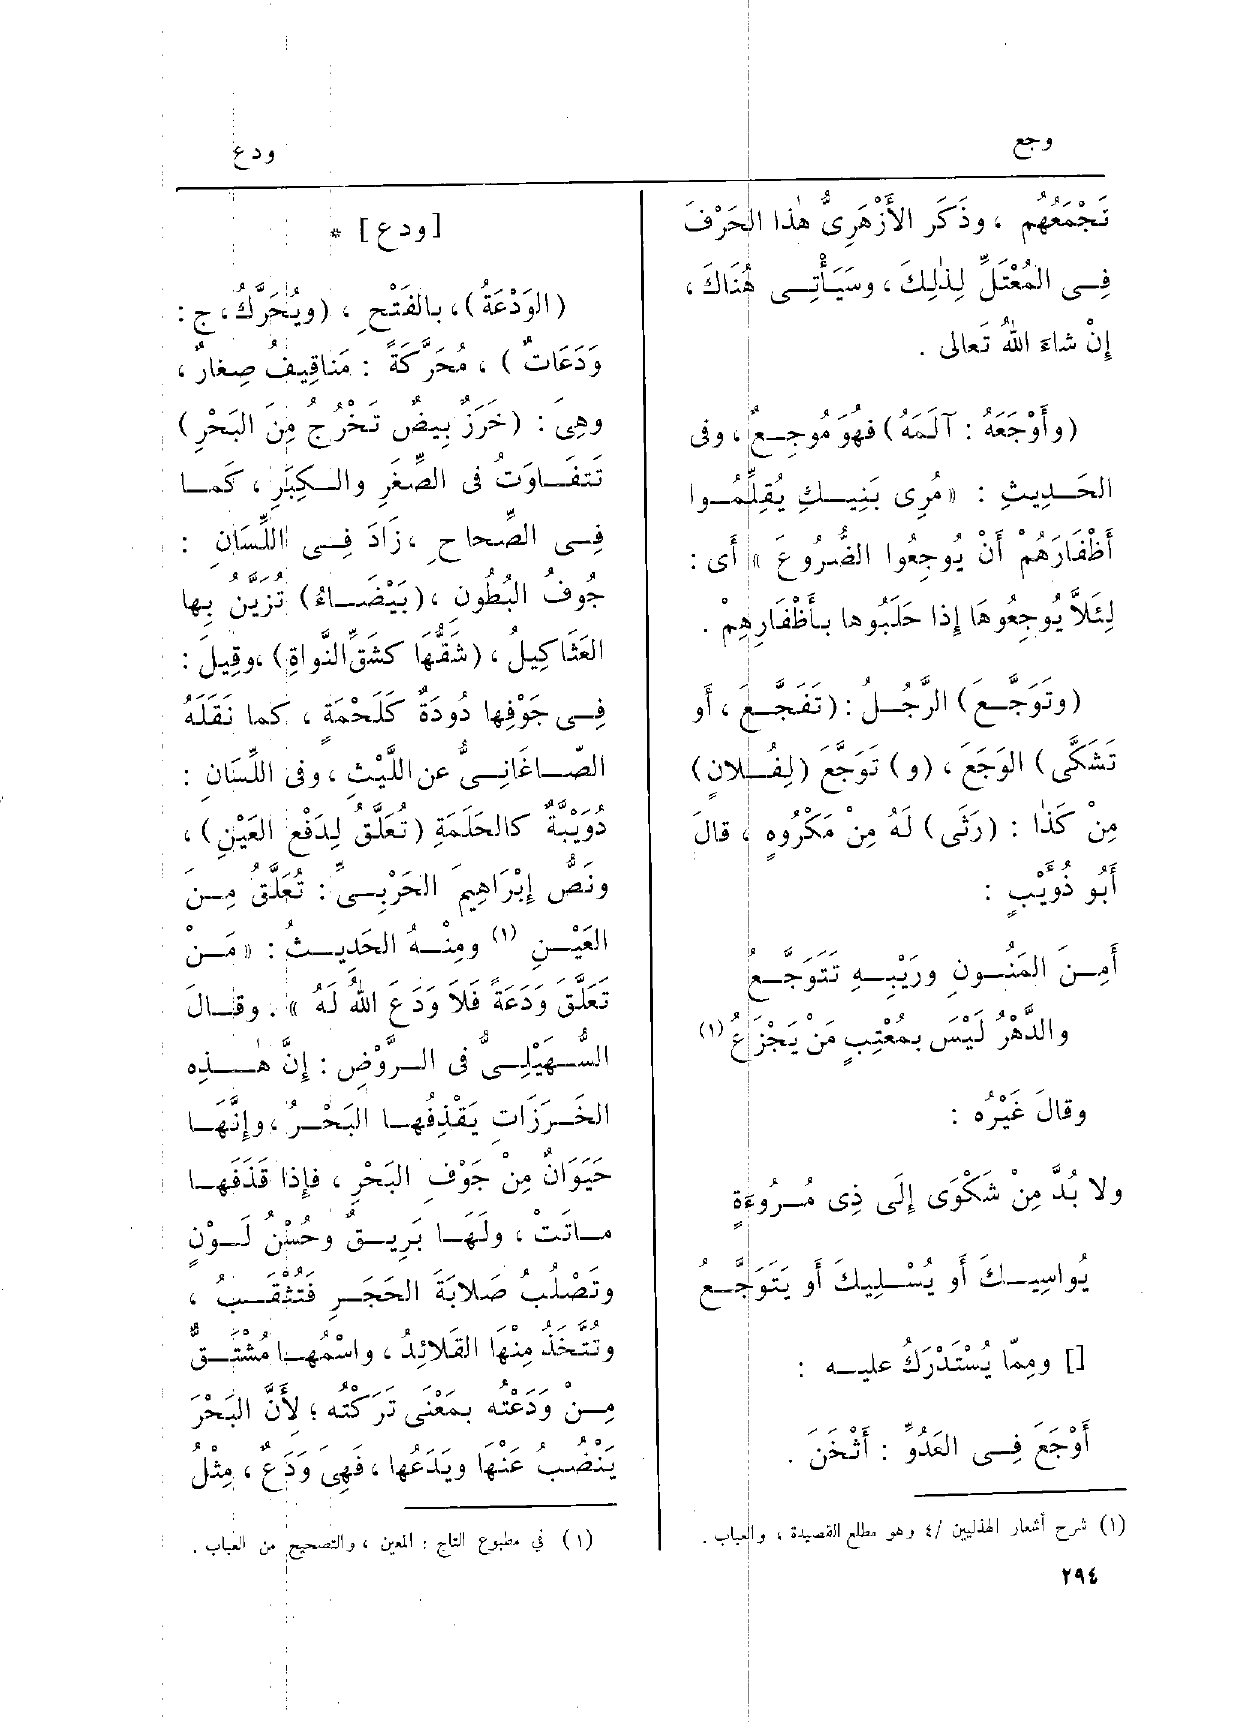 وجع
ودع
تَجْمَعُهُم ، وذَكَر الأَزْهَرِىُّ هٰذا الحَرْفَ
فِــى المُعْتَلِّ لِذٰلِكَ ، وسَيَأْتِــى هُنَاكَ ،
إِنْ شاءَ اللهُ تَعالى .
(وأَوْجَعَهُ : آلَمَهُ) فهُوَ مُوجِـعٌ ، وفى
الحَــدِيثِ : « مُرِى بَنِيــكِ يُقَلِّمُــوا
أَظْفَارَهُمْ أَنْ يُوجِعُوا الضُّرُوعَ » أَى :
لِئَلاَّ يُوجِعُوهَا إِذا حَلَبُوها بـأَظْفَارِهِمْ .
(وتَوَجَّــع) الرَّجُــلُ : (تَفَجَّــعَ ، أَو
تَشَكَّى) الوَجَعَ ، (و) تَوَجَّعَ (لِفُــلانٍ)
مِنْ كَذٰا : (رَثَى) لَهُ مِنْ مَكْرُوهٍ ، قالَ
أَبُو ذُوَيْبٍ :
أَمِـنَ المَنُــونِ ورَيْبِــهِ تَتَوَجَّــعُ
والدَّهْرُ لَيْسَ بمُعْتِبٍ مَنْ يَجْزَعُ (١)
وقالَ غَيْرُه :
ولا بُدَّ مِنْ شَكْوَى إِلَى ذِى مُـرُوءَةٍ
يُواسِيــكَ أَو يُسْــلِيكَ أَو يَتَوَجَّــعُ
[] ومِمّا يُسْتَدْرَكُ عليــه :
أَوْجَعَ فِــى العَدُوِّ : أَثْخَنَ .
(١) شرح أشعار الهذليين /٤ وهو مطلع القصيدة ، والعباب .
٢٩٤
[ودع] *
(الوَدْعَةُ) ، بالفَتْحِ ، (ويُحَرَّكُ ، ج :
وَدَعَاتٌ) ، مُحَرَّكَةً : مَناقِيفُ صِغارٌ ،
وهِىَ : (خَرَزٌ بِيضٌ تَخْرُجُ مِنَ البَحْرِ)
تَتَفَــاوَتُ فى الصِّغَرِ والــكِبَرِ ، كَمـا
فِــى الصِّحاحِ ، زَادَ فِــى اللِّسَانِ :
جُوفُ البُطُونِ ، (بَيْضَــاءُ) تُزَيَّنُ بِها
العَثَاكِيلُ ، (شَقُّهَا كَشَقِّ النَّواةِ) ، وقِيلَ :
فِــى جَوْفِها دُودَةٌ كَلَحْمَةٍ ، كما نَقَلَهُ
الصّــاغَانِــىُّ عن اللَّيْثِ ، وفى اللِّسَانِ :
دُوَيْبَّةٌ كالحَلَمَةِ (تُعَلَّقُ لِدَفْعِ العَيْنِ) ،
ونَصُّ إِبْرَاهِيمَ الحَرْبِــىِّ : تُعَلَّقُ مِــنَ
العَيْــنِ (١) ومِنْــهُ الحَدِيــثُ : « مَــنْ
تَعَلَّقَ وَدَعَةً فَلاَ وَدَعَ اللهُ لَهُ » . وقــالَ
السُّــهَيْلِــىُّ فى الــرَّوْضِ : إِنَّ هٰــذِه
الخَــرَزَاتِ يَقْذِفُهــا البَحْــرُ ، وإِنَّهَــا
حَيَوَانٌ مِنْ جَوْفِ البَحْرِ ، فإِذا قَذَفَهــا
مــاتَتْ ، ولَهَــا بَرِيــقٌ وحُسْنُ لَــوْنٍ
وتَصْلُبُ صَلابَةَ الحَجَــرِ فتُثْقَــبُ ،
وتُتَّخَذُ مِنْها القَلائِدُ ، واسْمُهــا مُشْتَــقٌّ
مِــنْ وَدَعْتُه بمَعْنَى تَرَكْتُه ؛ لأَنَّ البَحْرَ
يَنْضُبُ عَنْهَا ويَدَعُها ، فَهِىَ وَدَعٌ ، مِثْلُ
(١) في مطبوع التاج : المعين ، والتصحيح من العباب .